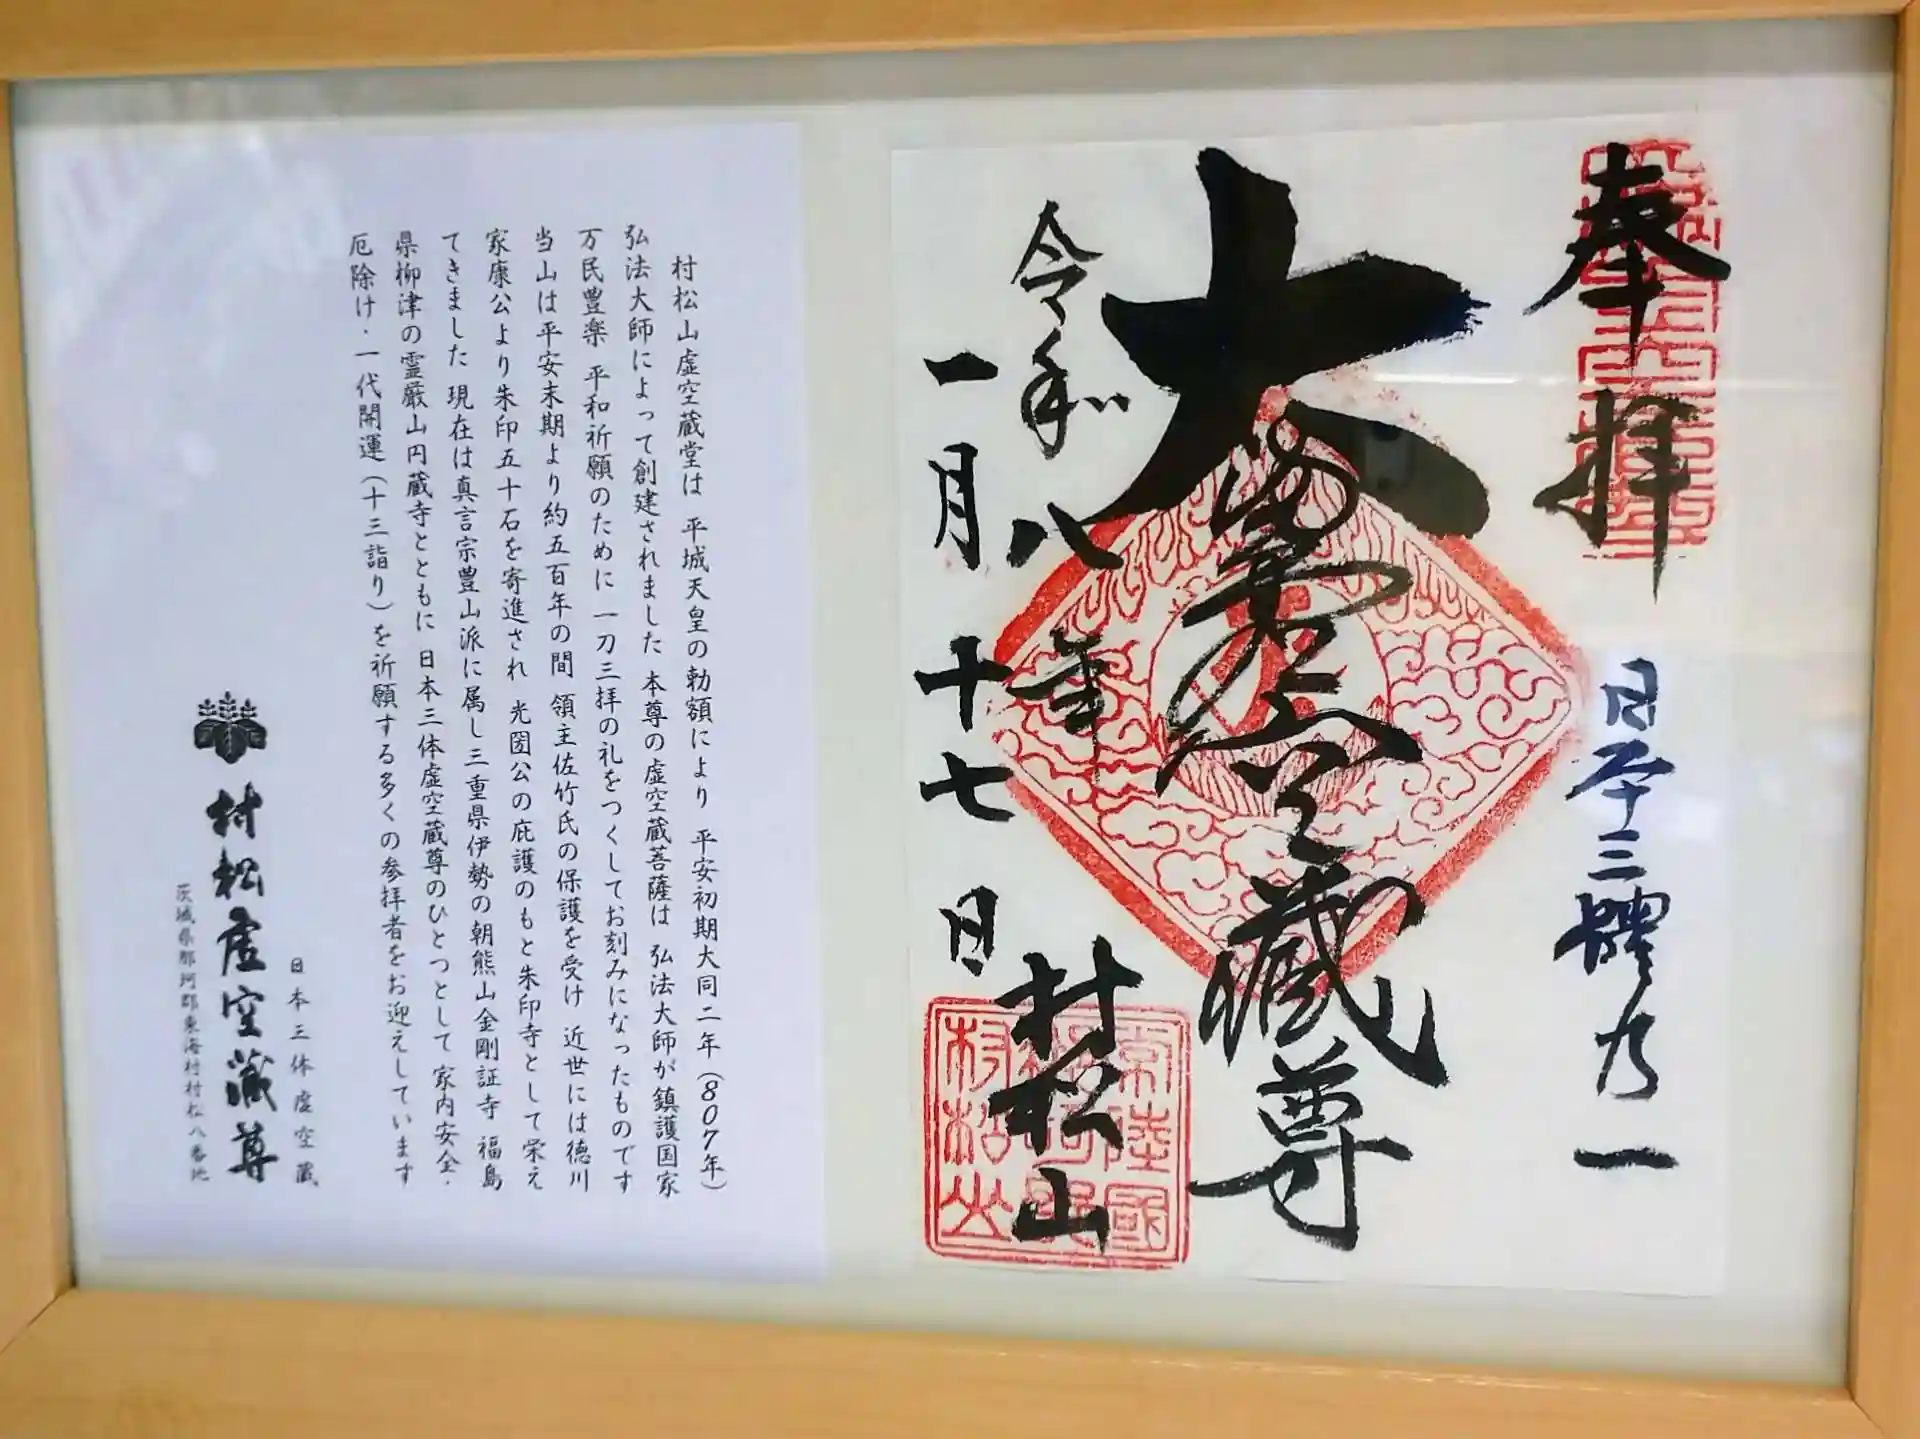 奉拝
日本三體乃一
大満虚空蔵尊
令和八年
一月十七日
村松山
常陸國
村松山
村松山虚空蔵堂は 平城天皇の勅額により 平安初期大同二年(807年)
弘法大師によって創建されました 本尊の虚空蔵菩薩は 弘法大師が鎮護国家
万民豊楽 平和祈願のために 一刀三拝の礼をつくしてお刻みになったものです
当山は平安末期より約五百年の間 領主佐竹氏の保護を受け 近世には徳川
家康公より朱印五十石を寄進され 光圀公の庇護のもと朱印寺として栄え
てきました 現在は真言宗豊山派に属し三重県伊勢の朝熊山金剛証寺 福島
県柳津の霊厳山円蔵寺とともに 日本三体虚空蔵尊のひとつとして家内安全・
厄除け・一代開運(十三詣り)を祈願する多くの参拝者をお迎えしています
日本三体虚空蔵
村松虚空蔵尊
茨城県那珂郡東海村村松八番地